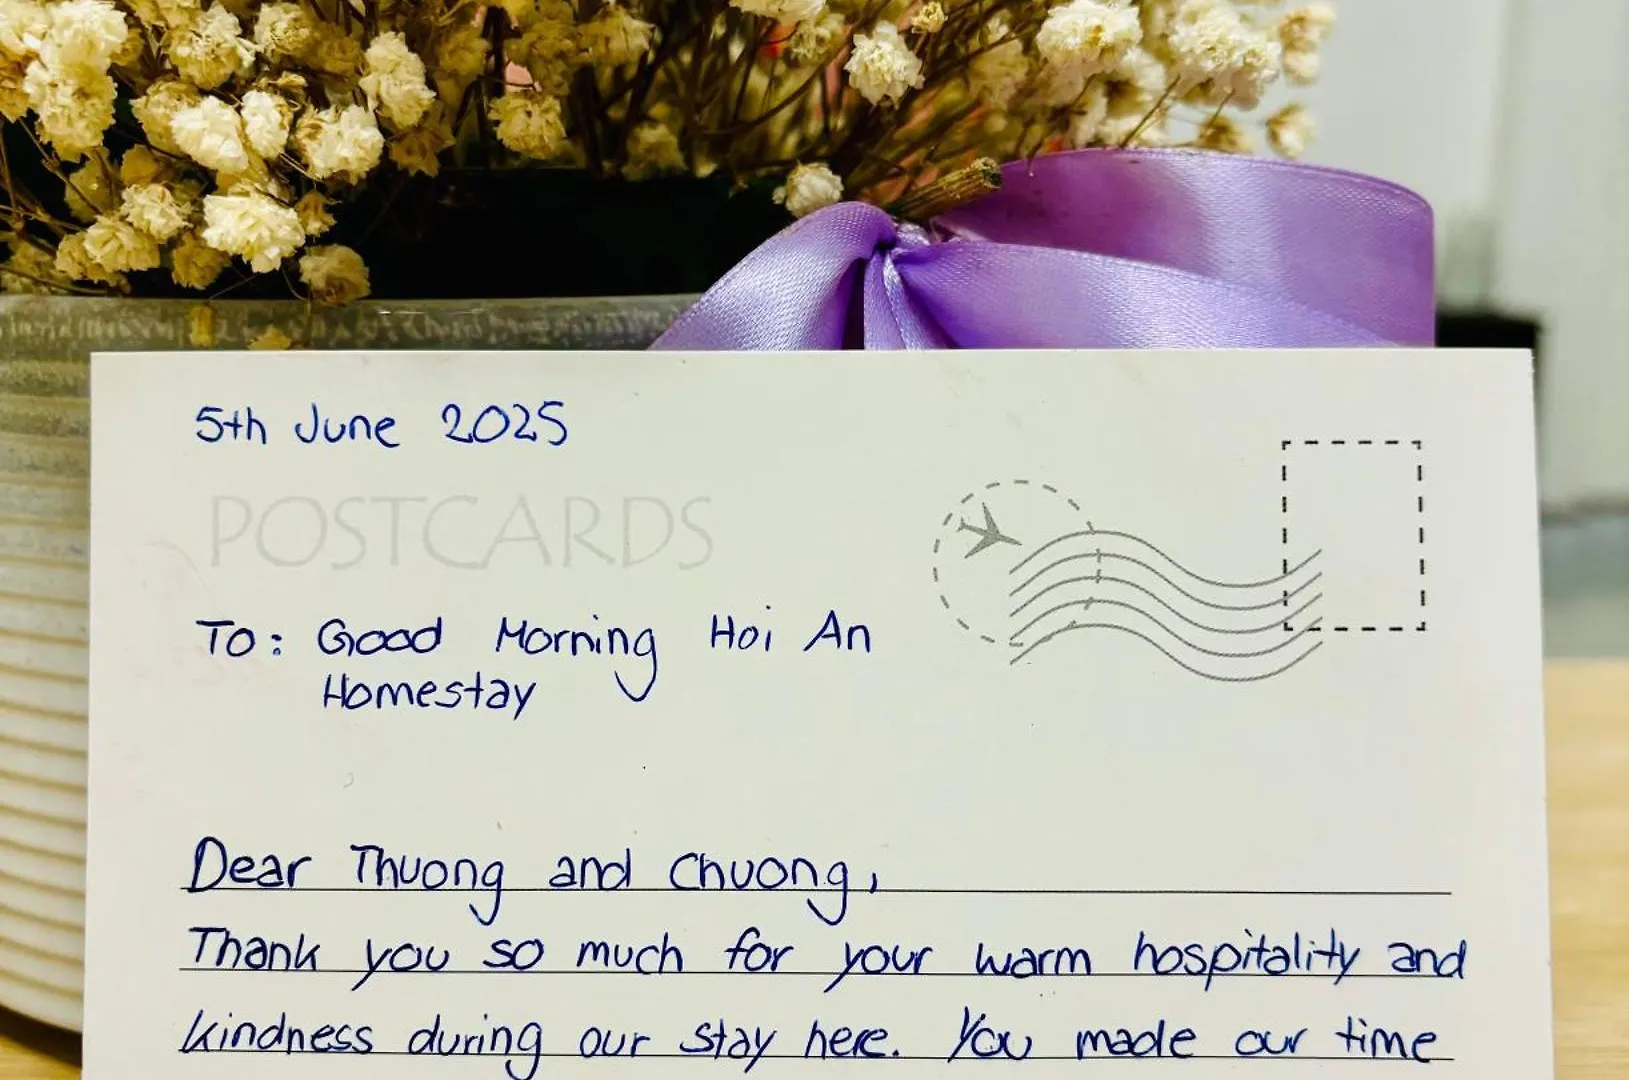 5th June 2025
POSTCARDS
To: Good Morning Hoi An
Homestay
Dear Thuong and Chuong,
Thank you so much for your warm hospitality and
kindness during our stay here. You made our time